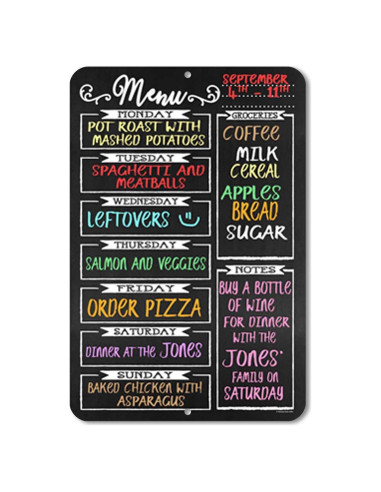 Menu
SEPTEMBER
4TH - 11TH
MONDAY
POT ROAST WITH
MASHED POTATOES
TUESDAY
SPAGHETTI AND
MEATBALLS
WEDNESDAY
LEFTOVERS
THURSDAY
SALMON AND VEGGIES
FRIDAY
ORDER PIZZA
SATURDAY
DINNER AT THE JONES
SUNDAY
BAKED CHICKEN WITH
ASPARAGUS
GROCERIES
COFFEE
MILK
CEREAL
APPLES
BREAD
SUGAR
NOTES
BUY A BOTTLE
OF WINE
FOR DINNER
WITH THE
JONES'
FAMILY ON
SATURDAY